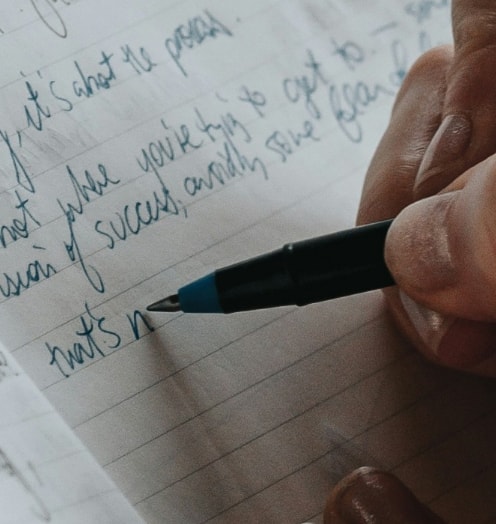 it's about the process.
not where you're trying to get to — some
vision of success, avoiding some fear of
that's n